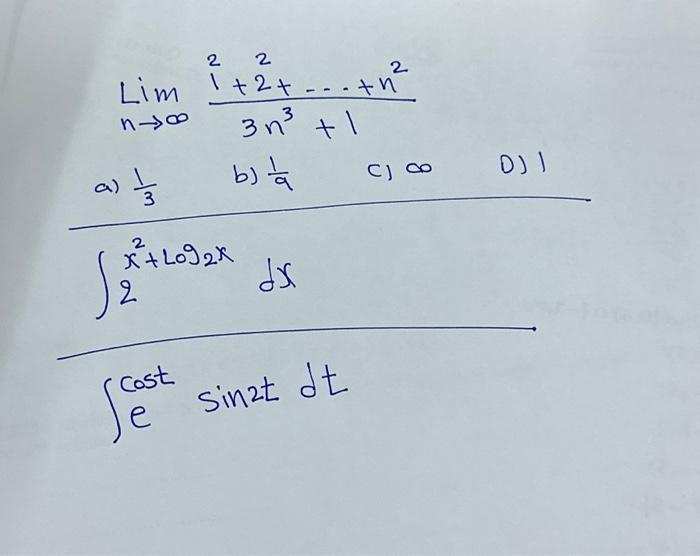 Lim n→∞ (1² + 2² + ... + n²) / (3n³ + 1)
a) 1/3 b) 1/9 c) ∞ D) 1
∫ 2^(x² + Log₂x) dx
∫ e^(cost) sin2t dt